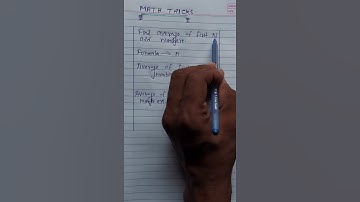 MATH TRICKS
Find average of first N
odd numbers
Formula → n
Average of
Average of